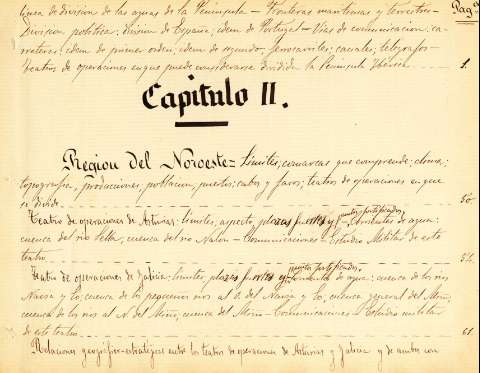 linea de division de las aguas de la Peninsula - Fronteras maritimas y terrestres - Pag.s
Division politica; division de España; idem de Portugal - Vias de comunicacion, ca-
rreteras; idem de primer orden; idem de segundo, ferrocarriles; canales; telegrafos -
Teatros de operaciones en que puede considerarse dividida la Peninsula Iberica 1.
Capitulo II.
Region del Noroeste = Limites; comarcas que comprende; clima;
topografia, producciones, poblacion, puertos; cabos y faros; teatros de operaciones en que
se divide 50.
Teatro de operaciones de Asturias: limites, aspecto, plazas fuertes y puntos fortificados, corrientes de agua:
cuenca del rio Sella, cuenca del rio Nalon - Comunicaciones - Estudio Militar de este
teatro
Teatro de operaciones de Galicia: limites, plazas fuertes y puntos fortificados, corrientes de agua: cuenca de los rios
Navia y Eo, cuenca de los pequeños rios al O. del Navia y Eo, cuenca general del Miño,
cuenca de los rios al N. del Miño, cuenca del Miño - Comunicaciones - Estudio militar
de este teatro 61.
Relaciones geografico-estratégicas entre los teatros de operaciones de Asturias y Galicia y de ambos con